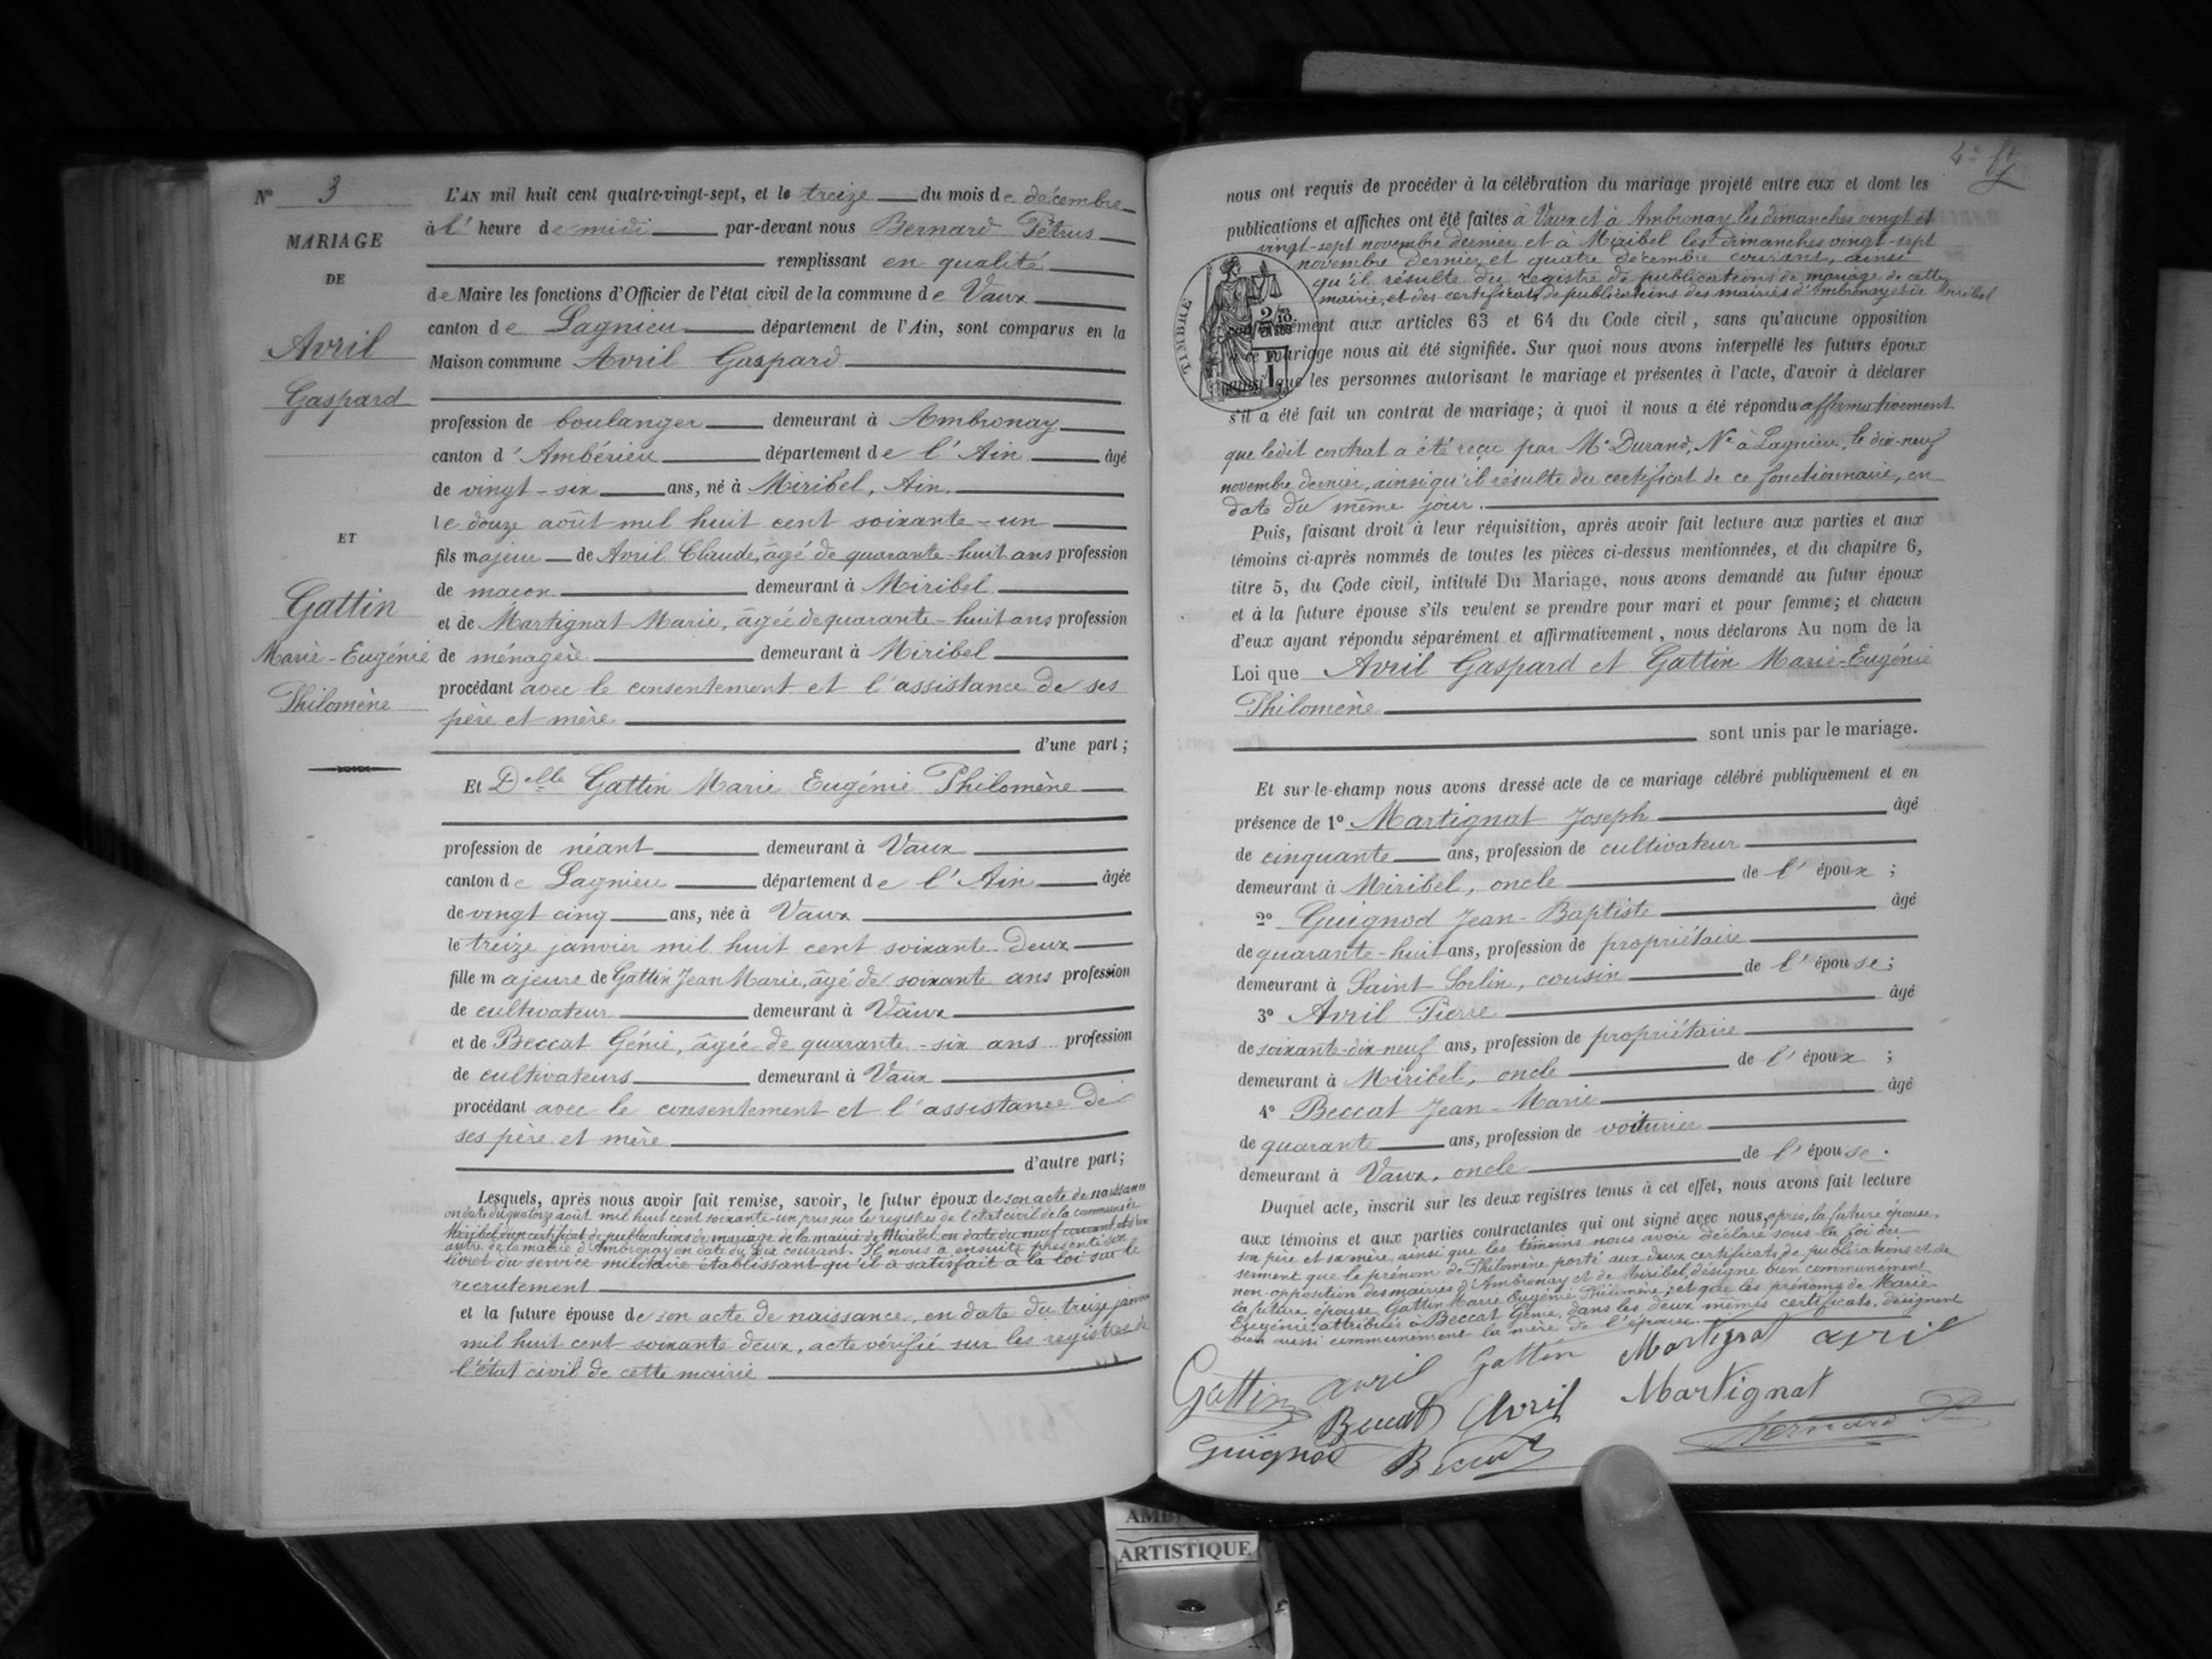 N° 3
MARIAGE
DE
Avril
Gaspard
ET
Gattin
Marie-Eugénie
Philomène
L'AN mil huit cent quatre-vingt-sept, et le treize du mois de décembre
à l' heure de midi par-devant nous Bernard Pétrus
remplissant en qualité
de Maire les fonctions d'Officier de l'état civil de la commune de Vaux
canton de Lagnieu département de l'Ain, sont comparus en la
Maison commune Avril Gaspard
profession de boulanger demeurant à Ambronay
canton d'Ambérieu département de l'Ain âgé
de vingt-six ans, né à Miribel, Ain,
le douze août mil huit cent soixante-un
fils majeur de Avril Claude, âgé de quarante-huit ans profession
de maçon demeurant à Miribel
et de Martignat Marie, âgée de quarante-huit ans profession
de ménagère demeurant à Miribel
procédant avec le consentement et l'assistance de ses
père et mère
d'une part;
Et Delle Gattin Marie Eugénie Philomène
profession de néant demeurant à Vaux
canton de Lagnieu département de l'Ain âgée
de vingt cinq ans, née à Vaux
le treize janvier mil huit cent soixante-deux
fille majeure de Gattin Jean Marie, âgé de soixante ans profession
de cultivateur demeurant à Vaux
et de Beccat Génie, âgée de quarante-six ans profession
de cultivateurs demeurant à Vaux
procédant avec le consentement et l'assistance de
ses père et mère
d'autre part;
Lesquels, après nous avoir fait remise, savoir, le futur époux de son acte de naissance
en date du quatorze août mil huit cent soixante-un pris sur les registres de l'état civil de la commune de
Miribel, d'un certificat de publications de mariage de la mairie de Miribel en date du neuf courant, et d'un
autre de la mairie d'Ambronay en date du dix courant. Il nous a ensuite présenté son
livret du service militaire établissant qu'il a satisfait à la loi sur le
recrutement
et la future épouse de son acte de naissance, en date du treize janvier
mil huit cent soixante deux, acte vérifié sur les registres de
l'état civil de cette mairie
nous ont requis de procéder à la célébration du mariage projeté entre eux et dont les
publications et affiches ont été faites à Vaux et à Ambronay les dimanches vingt et
vingt-sept novembre dernier et à Miribel les dimanches vingt-sept
novembre dernier et quatre décembre courant, ainsi
qu'il résulte du registre de publications de mariage de cette
mairie, et des certificats de publications des mairies d'Ambronay et de Miribel
TIMBRE
conformément aux articles 63 et 64 du Code civil, sans qu'aucune opposition
à ce mariage nous ait été signifiée. Sur quoi nous avons interpellé les futurs époux
ainsi que les personnes autorisant le mariage et présentes à l'acte, d'avoir à déclarer
s'il a été fait un contrat de mariage; à quoi il nous a été répondu affirmativement
que ledit contrat a été reçu par Me Durand, Nre à Lagnieu, le dix-neuf
novembre dernier, ainsi qu'il résulte du certificat de ce fonctionnaire, en
date du même jour.
Puis, faisant droit à leur réquisition, après avoir fait lecture aux parties et aux
témoins ci-après nommés de toutes les pièces ci-dessus mentionnées, et du chapitre 6,
titre 5, du Code civil, intitulé Du Mariage, nous avons demandé au futur époux
et à la future épouse s'ils veulent se prendre pour mari et pour femme; et chacun
d'eux ayant répondu séparément et affirmativement, nous déclarons Au nom de la
Loi que Avril Gaspard et Gattin Marie-Eugénie
Philomène
sont unis par le mariage.
Et sur-le-champ nous avons dressé acte de ce mariage célébré publiquement et en
présence de 1° Martignat Joseph âgé
de cinquante ans, profession de cultivateur
demeurant à Miribel, oncle de l'époux ;
2° Guignod Jean-Baptiste âgé
de quarante-huit ans, profession de propriétaire
demeurant à Saint-Sorlin, cousin de l'épouse;
3° Avril Pierre âgé
de soixante-dix-neuf ans, profession de propriétaire
demeurant à Miribel, oncle de l'époux ;
4° Beccat Jean-Marie âgé
de quarante ans, profession de voiturier
demeurant à Vaux, oncle de l'épouse.
Duquel acte, inscrit sur les deux registres tenus à cet effet, nous avons fait lecture
aux témoins et aux parties contractantes qui ont signé avec nous, après, la future épouse,
son père et sa mère, ainsi que les témoins nous avoir déclaré sous la foi du
serment que le prénom de Philomène porté aux deux certificats de publications et de
non-opposition des mairies d'Ambronay et de Miribel, désigne bien communément
la future épouse, Gattin Marie Eugénie Philomène; et que les prénoms de Marie-
Eugénie, attribués à Beccat Génie, dans les deux mêmes certificats, désignent
bien aussi communément la mère de l'épouse.
Gattin avril Gattin Martignat avril
Beccat Avril Martignat
Guignod Beccat Bernard P
ARTISTIQUE